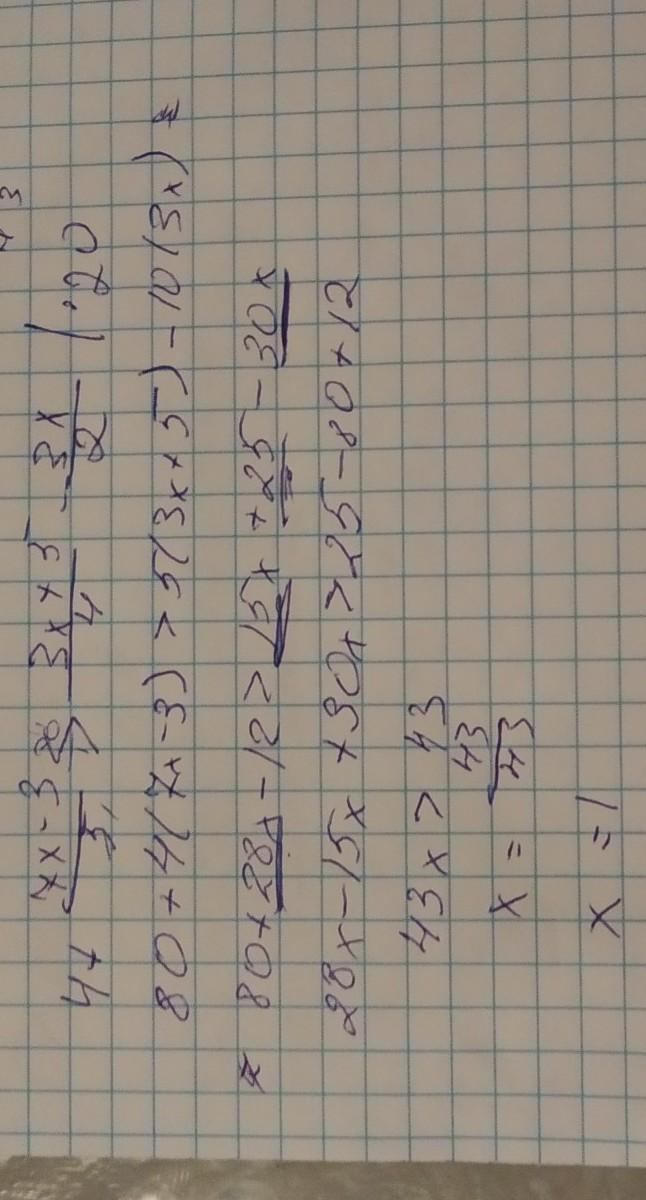 4+ \frac{7x-3}{5} > \frac{3x+5}{4} - \frac{3x}{2} / ·20
80+4(7x-3) > 5(3x+5) - 10(3x) *
* 80+28x-12 > 15x +25 - 30x
28x-15x +30x > 25-80+12
43x > 43
x = \frac{43}{43}
x = 1